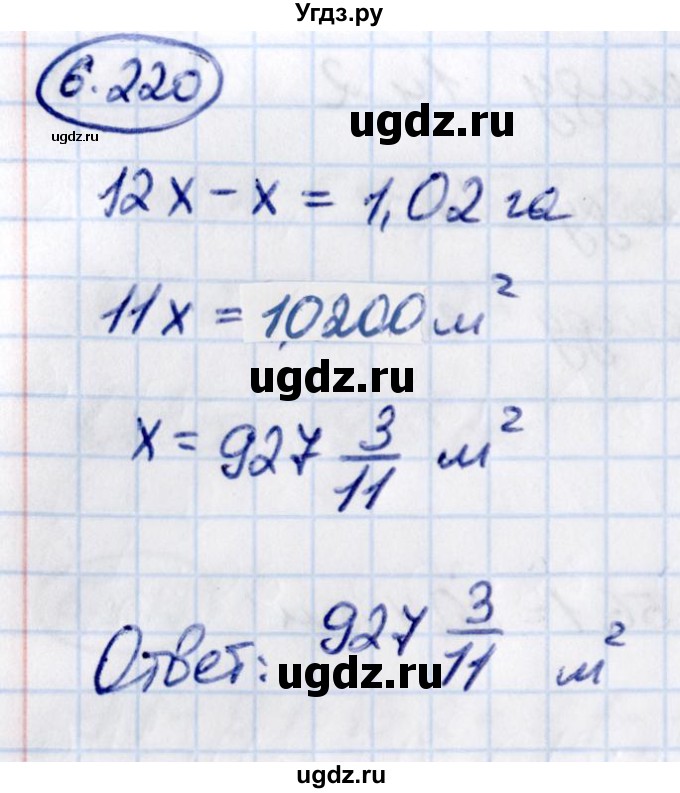 Угдз.ру
6.220
ugdz.ru
ugdz.ru
12x - x = 1,02 га
11x = 10200 м²
ugdz.ru
x = 927 3/11 м²
Ответ: 927 3/11 м²
ugdz.ru
ugdz.ru